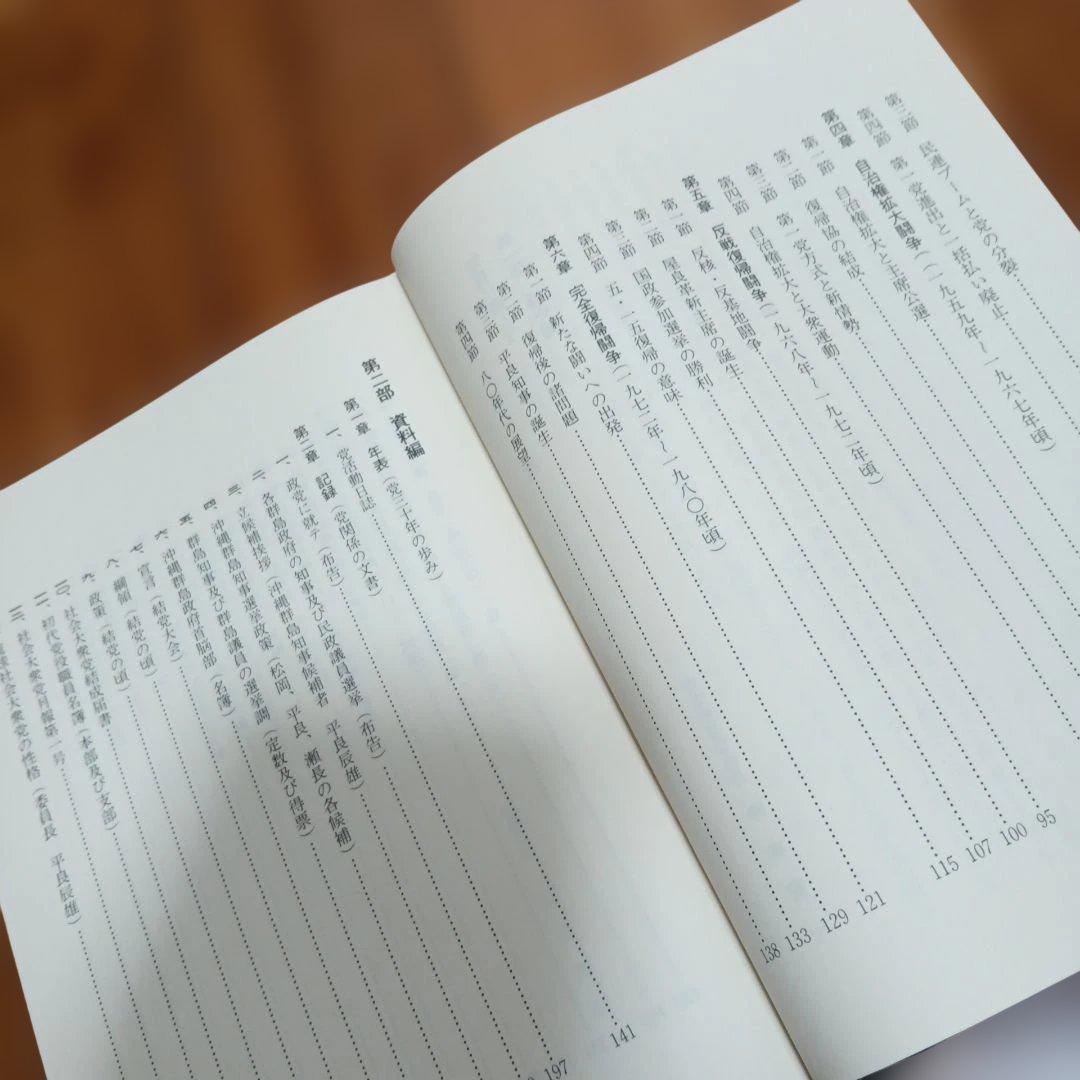 第三節 民連ブームと党の分裂
第四節 第一党進出と一括払い廃止
第四章 自治権拡大闘争（一九五九年～一九六七年頃）
第一節 自治権拡大と主席公選
第二節 復帰協の結成と新情勢
第三節 第一党方式と大衆運動
第四節 自治権拡大
第五章 反戦復帰闘争（一九六八年～一九七二年頃）
第一節 反核・反基地闘争
第二節 屋良革新主席の誕生
第三節 国政参加選挙の勝利
第四節 五・一五復帰の意味
第六章 完全復帰闘争（一九七二年～一九八〇年頃）
第一節 新たな闘いへの出発
第二節 復帰後の諸問題
第三節 平良知事の誕生
第四節 八〇年代の展望
95
100
107
115
121
129
133
138
第二部 資料編
第一章 年表（党三十年の歩み）
一、党活動日誌 141
第二章 記録（党関係の文書）
一、政党に就テ（布告） 197
二、各群島政府の知事及び民政議員選挙（布告）
三、立候補挨拶（沖縄群島知事候補者 平良辰雄）
四、沖縄群島知事選挙政策（松岡、平良、瀬長の各候補）
五、群島知事及び群島議員の選挙調（定数及び得票）
六、沖縄群島政府首脳部（名簿）
七、宣言（結党大会）
八、綱領（結党の頃）
九、政策（結党の頃）
一〇、社会大衆党結成届書
一一、初代党役職員名簿（本部及び支部）
一二、社会大衆党月報第一号
球社会大衆党の性格（委員長 平良辰雄）